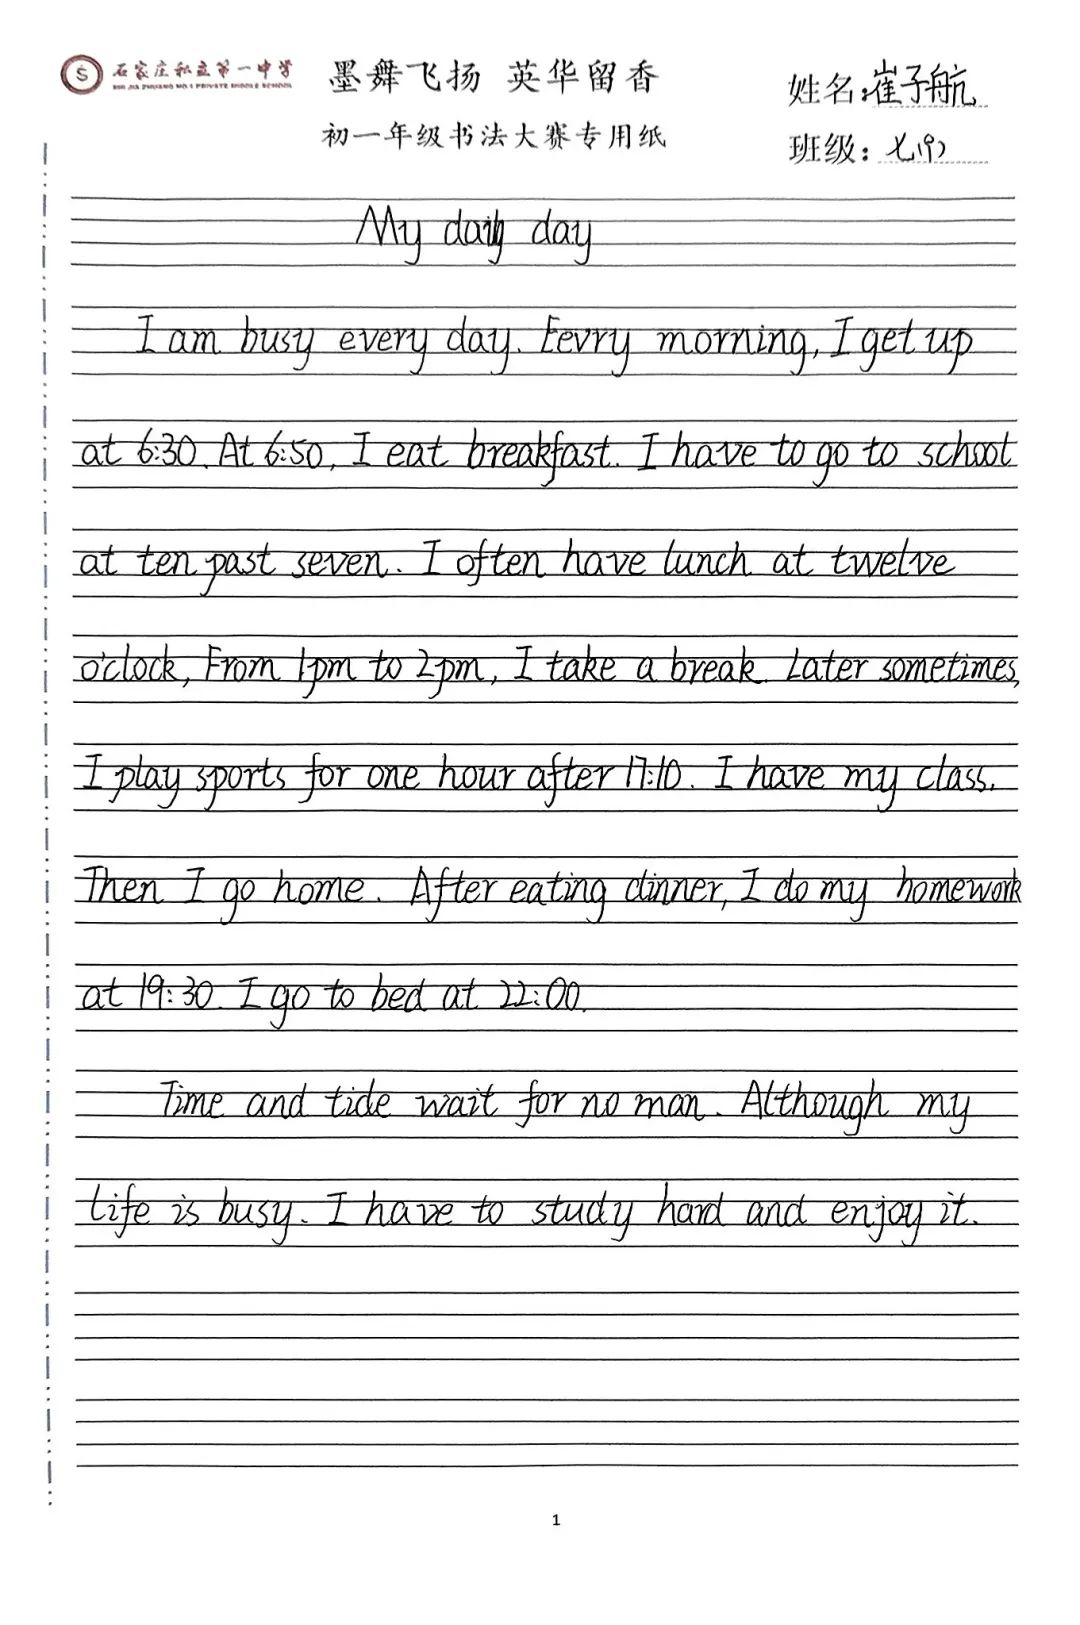 石家庄私立第一中学
SHI JIA ZHUANG NO.1 PRIVATE MIDDLE SCHOOL
墨舞飞扬 英华留香
初一年级书法大赛专用纸
姓名:崔子航
班级:
My daily day
I am busy every day. Eevry morning, I get up
at 6:30. At 6:50, I eat breakfast. I have to go to school
at ten past seven. I often have lunch at twelve
o'clock, From 1pm to 2pm, I take a break. Later sometimes,
I play sports for one hour after 17:10. I have my class.
Then I go home. After eating dinner, I do my homework
at 19:30. I go to bed at 22:00.
Time and tide wait for no man. Although my
life is busy. I have to study hard and enjoy it.
1